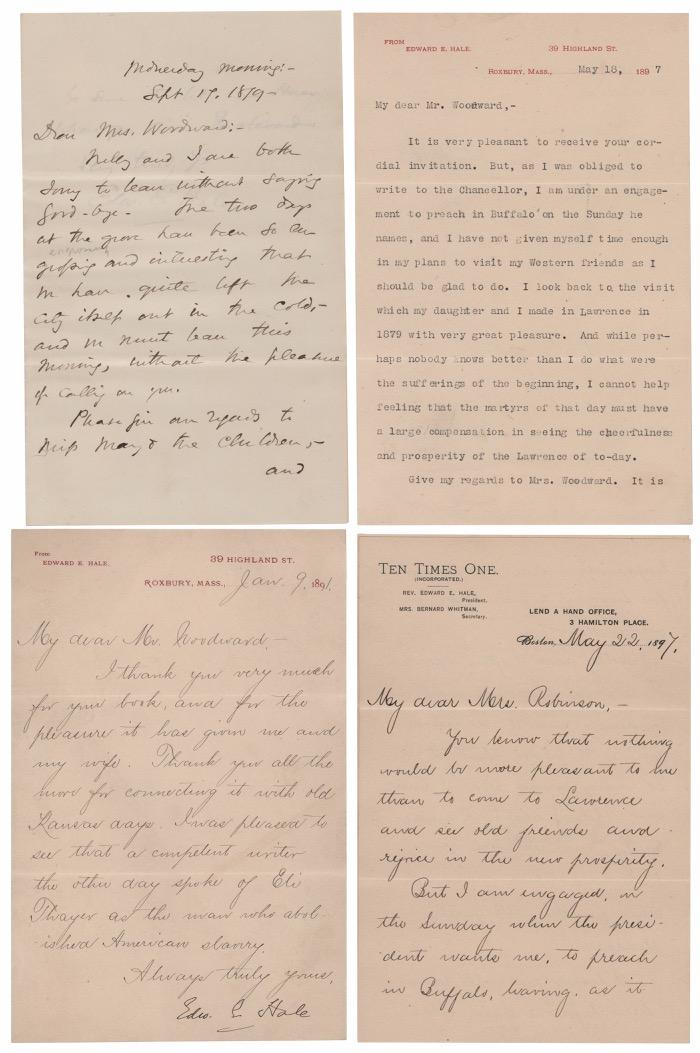 Wednesday morning:-
Sept 17. 1879-
Dear Mrs. Woodward:-
Nelly and I are both
sorry to leave without saying
good-bye. The two days
at the grove have been so en-
engrossing
grossing and interesting that
we have quite left the
city itself out in the cold,-
and we must leave this
morning, without the pleasure
of calling on you.
Please give our regards to
Miss May & the children,-
and
FROM
EDWARD E. HALE. 39 HIGHLAND ST.
ROXBURY, MASS., May 18, 1897
My dear Mr. Woodward,-
It is very pleasant to receive your cor-
dial invitation. But, as I was obliged to
write to the Chancellor, I am under an engage-
ment to preach in Buffalo on the Sunday he
names, and I have not given myself time enough
in my plans to visit my Western friends as I
should be glad to do. I look back to the visit
which my daughter and I made in Lawrence in
1879 with very great pleasure. And while per-
haps nobody knows better than I do what were
the sufferings of the beginning, I cannot help
feeling that the martyrs of that day must have
a large compensation in seeing the cheerfulness
and prosperity of the Lawrence of to-day.
Give my regards to Mrs. Woodward. It is
From
EDWARD E. HALE. 39 HIGHLAND ST.
ROXBURY, MASS., Jan. 9. 1891.
My dear Mr. Woodward,-
I thank you very much
for your book, and for the
pleasure it has given me and
my wife. Thank you all the
more for connecting it with old
Kansas days. I was pleased to
see that a competent writer
the other day spoke of Eli
Thayer as the man who abol-
ished American slavery.
Always truly yours,
Edw. E. Hale
TEN TIMES ONE.
(INCORPORATED.)
REV. EDWARD E. HALE,
President.
MRS. BERNARD WHITMAN,
Secretary.
LEND A HAND OFFICE,
3 HAMILTON PLACE.
Boston, May 22, 1897.
My dear Mrs. Robinson,-
You know that nothing
would be more pleasant to me
than to come to Lawrence
and see old friends and
rejoice in the new prosperity.
But I am engaged, on
the Sunday when the presi-
dent wants me, to preach
in Buffalo, having, as it